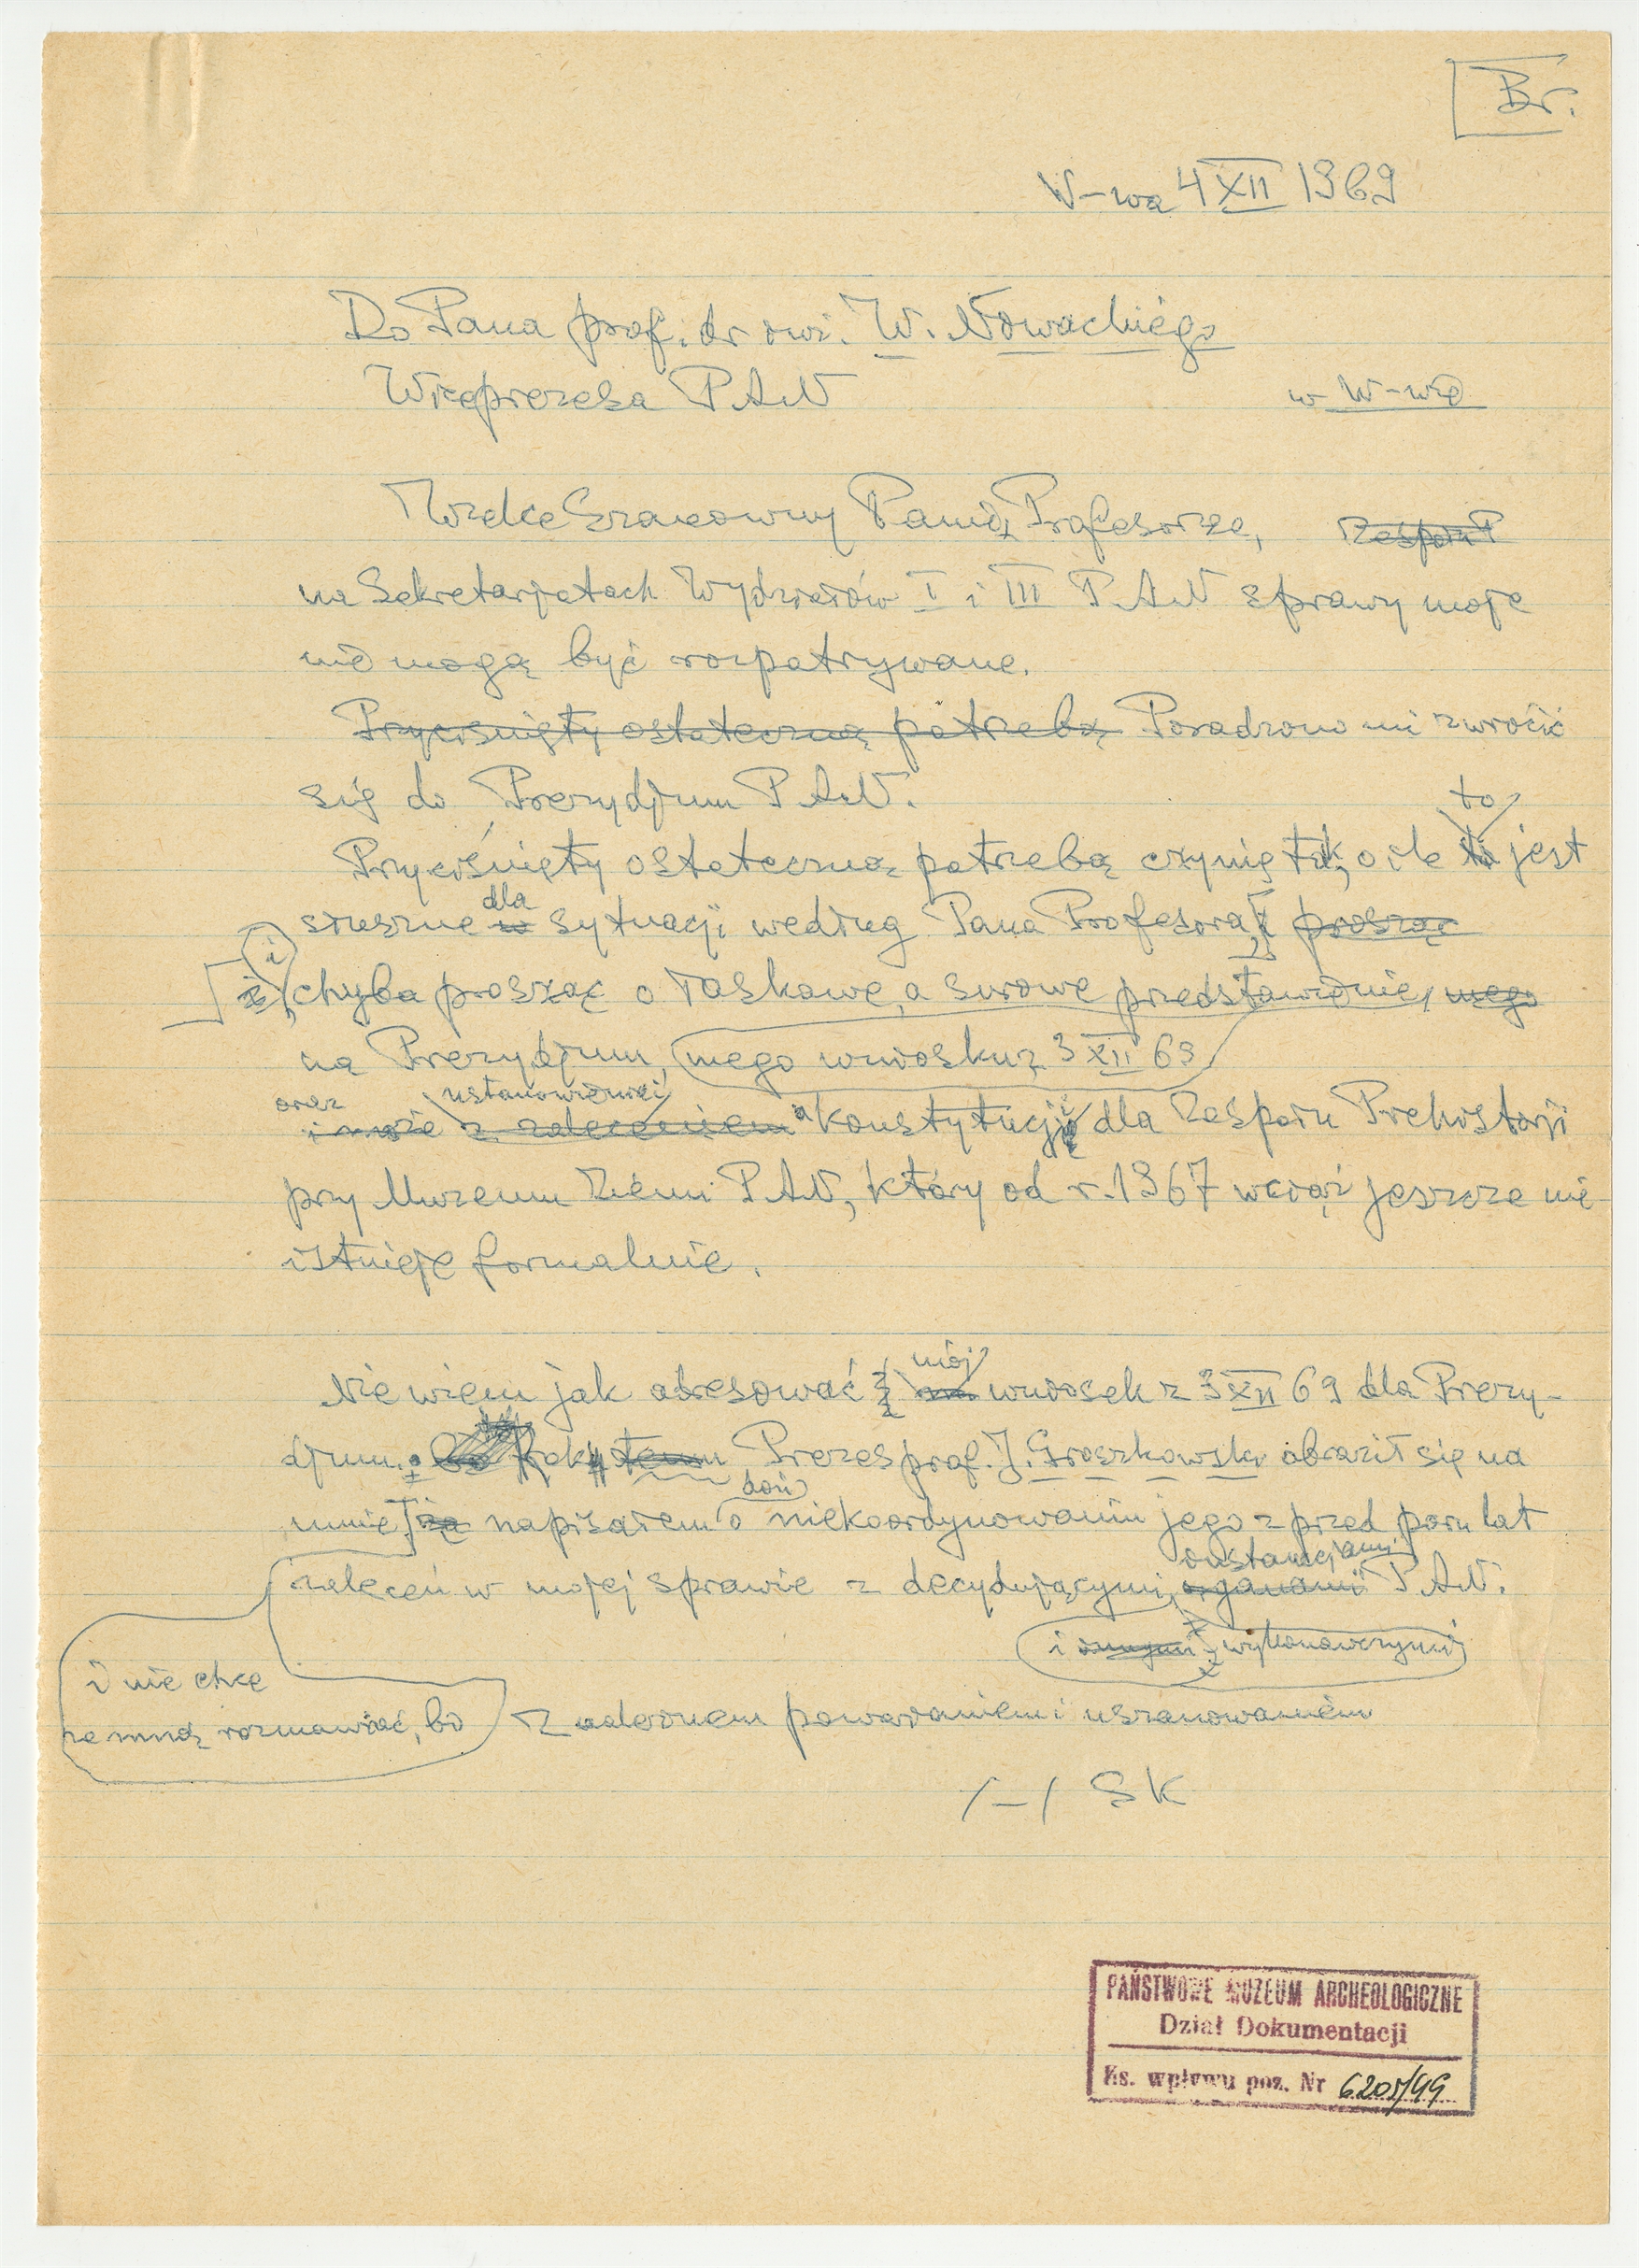 Br.
W-wa 4 XII 1969
Do Pana prof. dr inż. W. Nowackiego
Wiceprezesa PAN w W-wie
Wielce Szanowny Panie Profesorze, Zespołu
na Sekretarjatach Wydziałów I i III PAN sprawy moje
nie mogą być rozpatrywane.
Przyciśnięty ostateczną potrzebą Poradzono mi zwrócić
się do Prezydjum PAN.
to
Przyciśnięty ostateczną potrzebą czynię tak, o ile to jest
dla
słuszne w sytuacji według Pana Profesora, prosząc
i
chyba prosząc o łaskawe, a surowe przedstawienie, mego
na Prezydjum, mego wniosku z 3 XII 69
oraz ustanowienie
i może z zaleceniem Konstytucji dla Zespołu Prehistorji
przy Muzeum Ziemi PAN, który od r. 1967 wciąż jeszcze nie
istnieje formalnie.
mój
Nie wiem jak adresować wniosek z 3 XII 69 dla Prezy-
djum: bo rok temu Prezes prof. J. Groszkowski obraził się na
doń
mnie, że napisałem o niekoordynowaniu jego z przed paru lat
instancjami
zaleceń w mojej sprawie z decydującymi organami PAN.
i wykonawczymi
i nie chce
ze mną rozmawiać, bo
Z należnem poważaniem i uszanowaniem
/-/ SK
PAŃSTWOWE MUZEUM ARCHEOLOGICZNE
Dział Dokumentacji
Ks. wpływu poz. Nr 6205/99